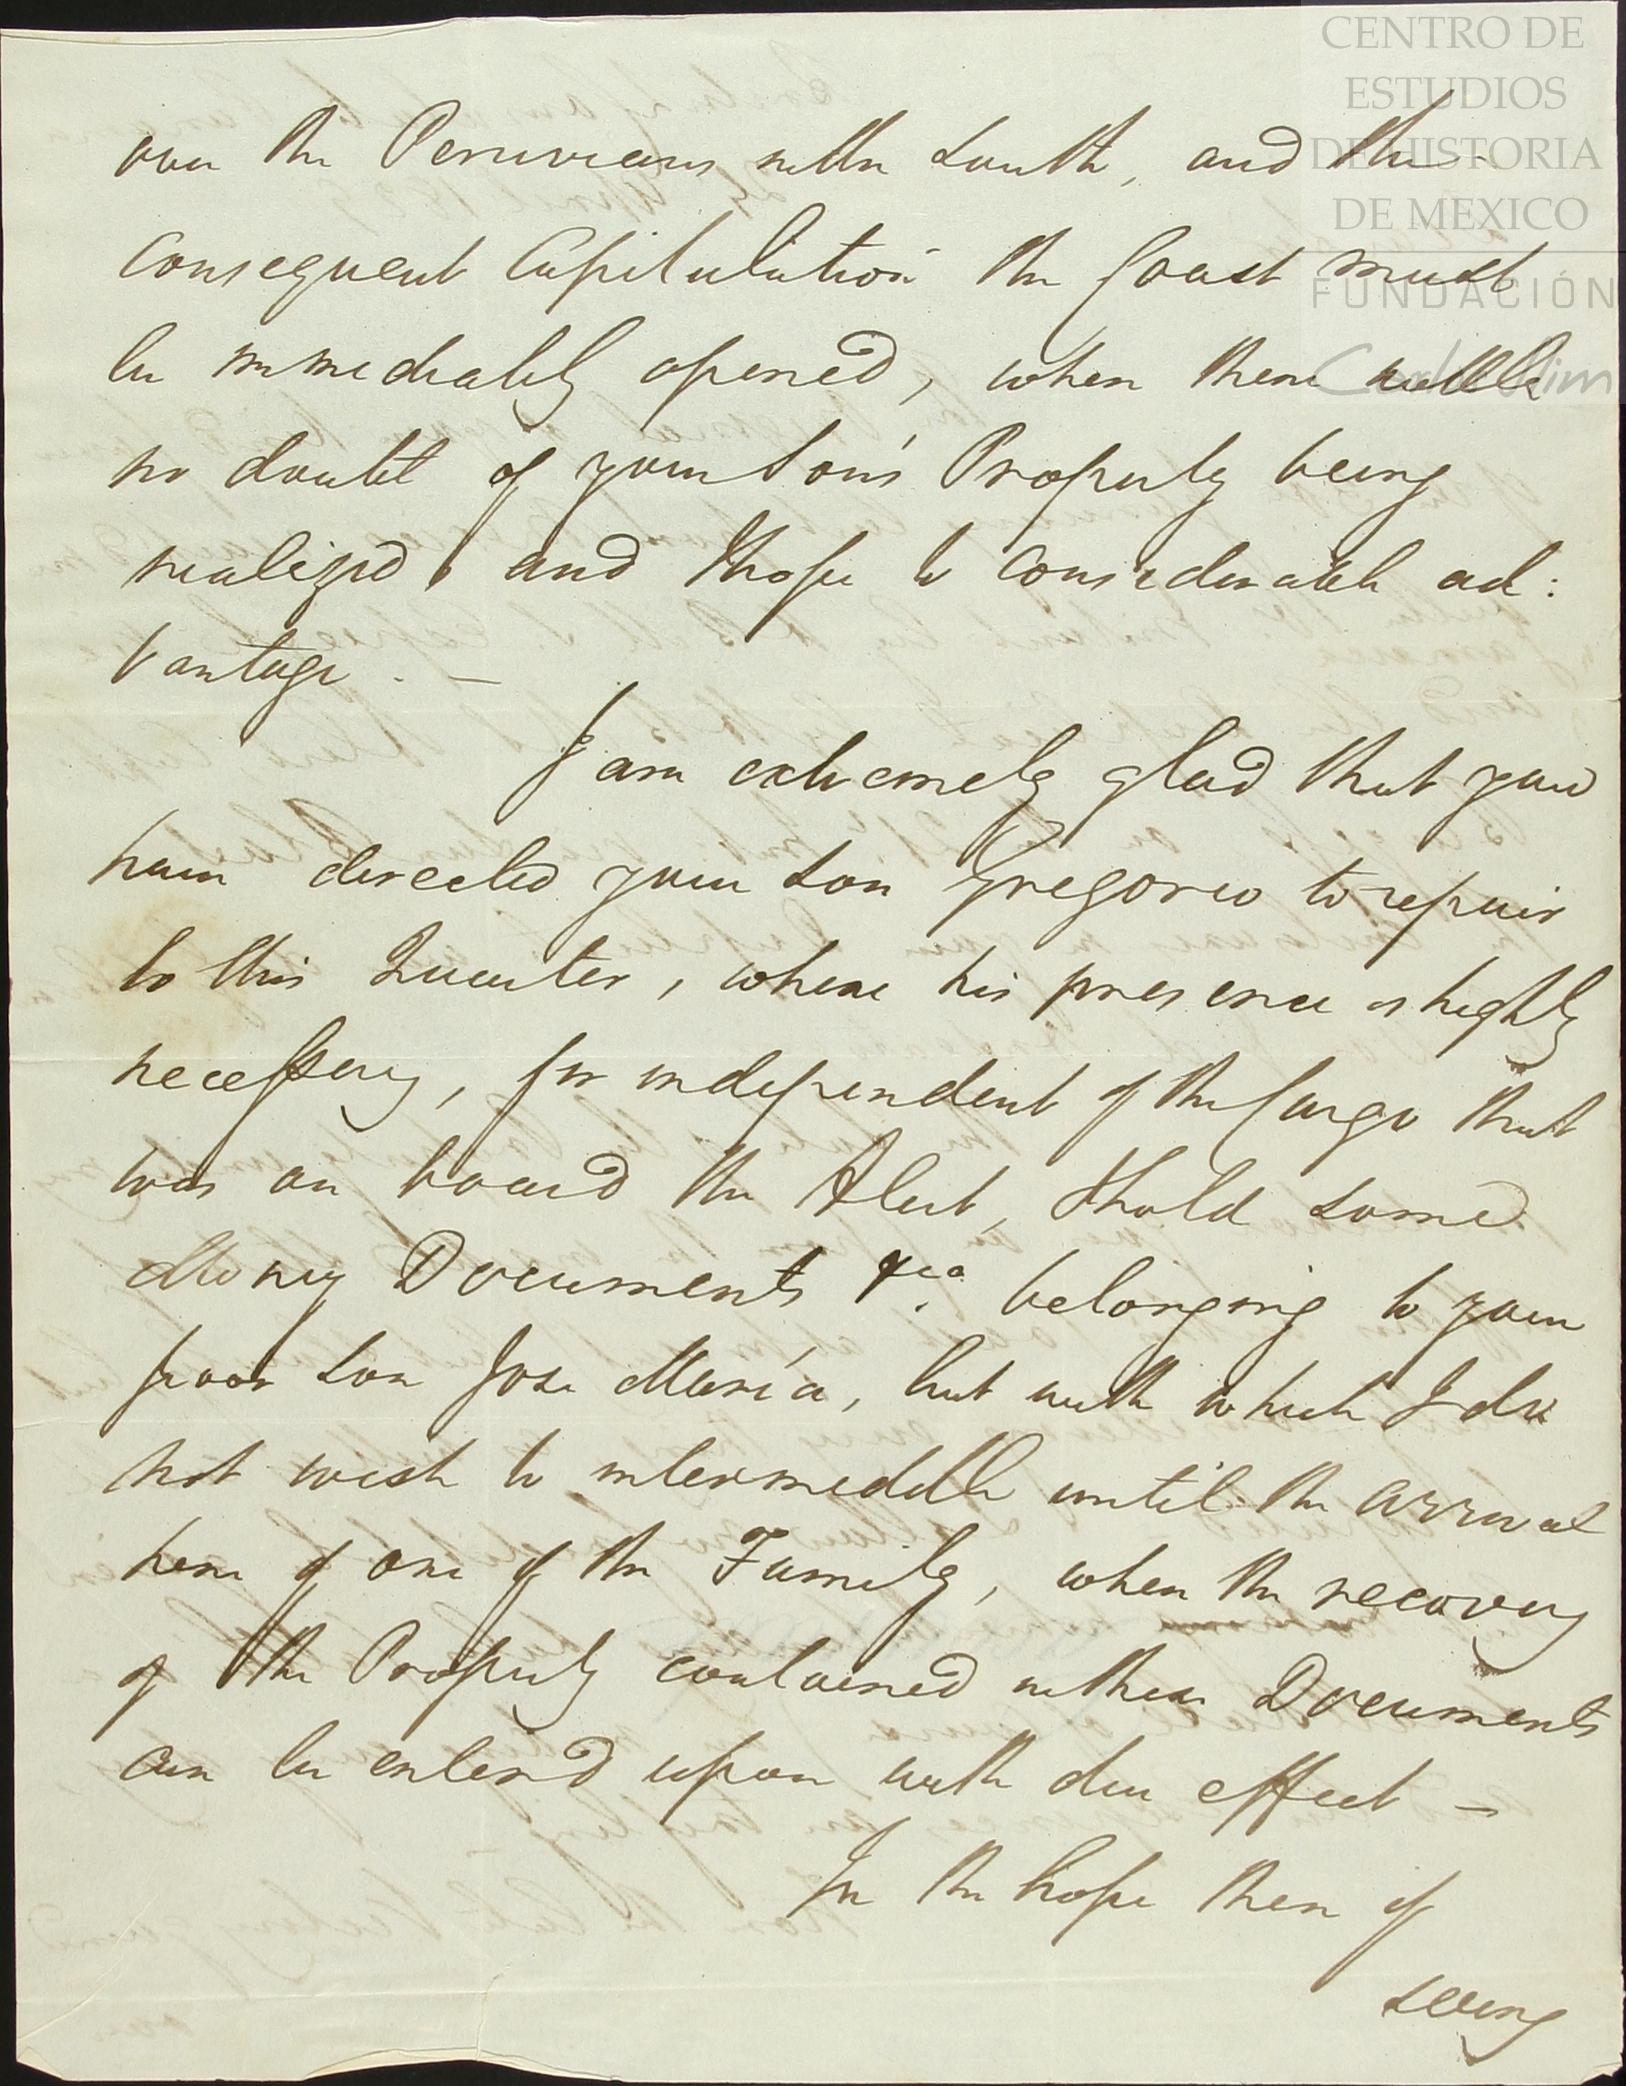 CENTRO DE
ESTUDIOS
DE HISTORIA
DE MEXICO
FUNDACIÓN
Carlos Slim
over the Peruvians in the South, and the
Consequent Capitulation the Coast must
be immediately opened, when there will be
no doubt of your Son's Property being
realized, and I hope to considerable ad:
vantage. —
I am extremely glad that you
have directed your Son Gregorio to repair
to this Quarter, where his presence is highly
necessary, for independent of the Cargo that
was on board the Alert, I hold some
Money Documents &ca. belonging to your
poor Son Jose María, but with which I do
not wish to intermeddle until the arrival
here of one of the Family, when the recovery
of the Property contained in these Documents
can be enter'd upon with due effect —
In the hope then of
seeing